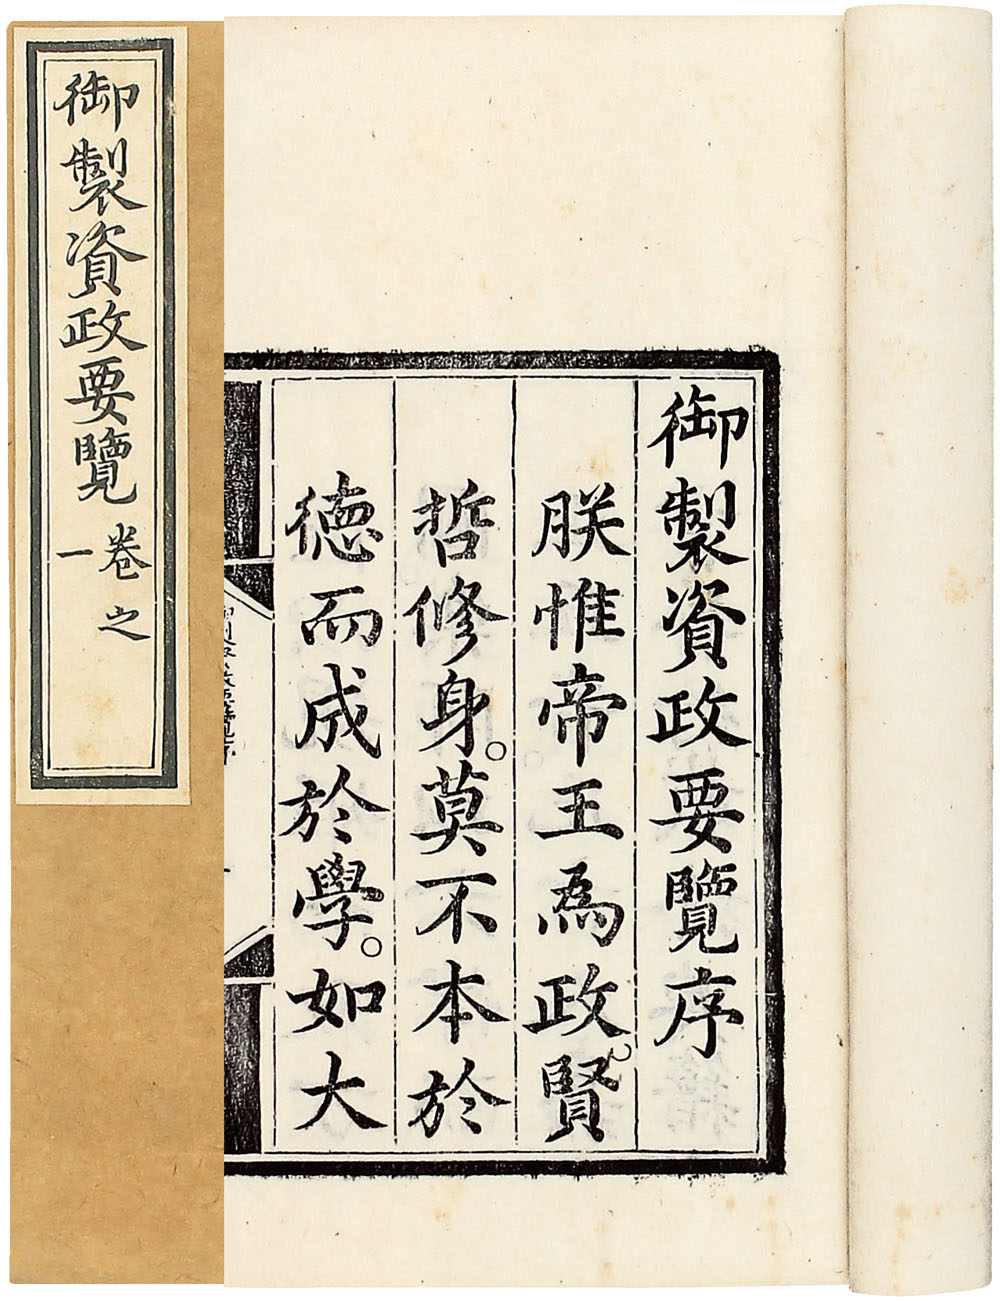 御製資政要覽卷之
一
御製資政要覽序
朕惟帝王為政。賢
哲修身。莫不本於
德而成於學。如大